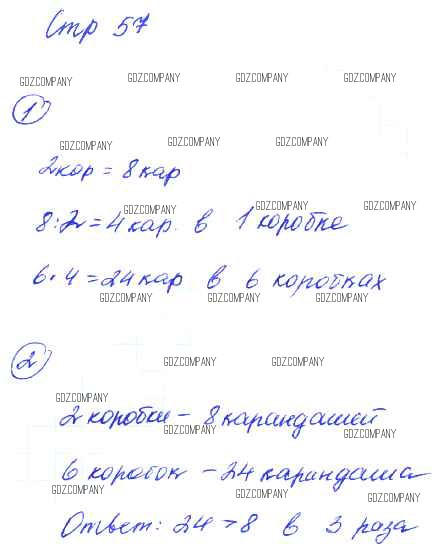 Стр 57
GDZCOMPANY GDZCOMPANY GDZCOMPANY GDZCOMPANY
1
GDZCOMPANY GDZCOMPANY GDZCOMPANY
2кор = 8 кар
GDZCOMPANY GDZCOMPANY GDZCOMPANY
8:2=4 кар. в 1 коробке
6·4=24 кар в 6 коробках
GDZCOMPANY GDZCOMPANY GDZCOMPANY
2
GDZCOMPANY GDZCOMPANY
GDZCOMPANY
2 коробки – 8 карандашей
GDZCOMPANY GDZCOMPANY
6 коробок – 24 карандаша
GDZCOMPANY GDZCOMPANY GDZCOMPANY
Ответ: 24 > 8 в 3 раза